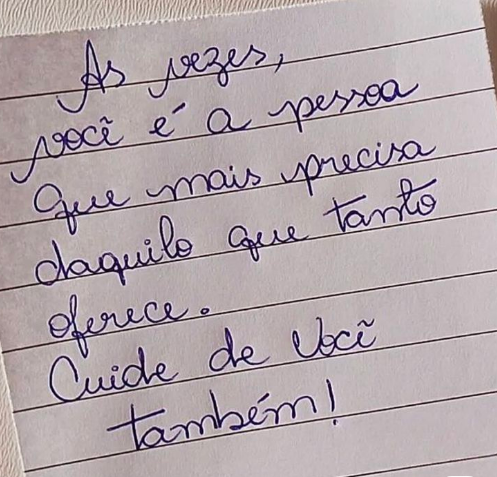 As vezes,
você é a pessoa
que mais precisa
daquilo que tanto
oferece.
Cuide de Você
também!